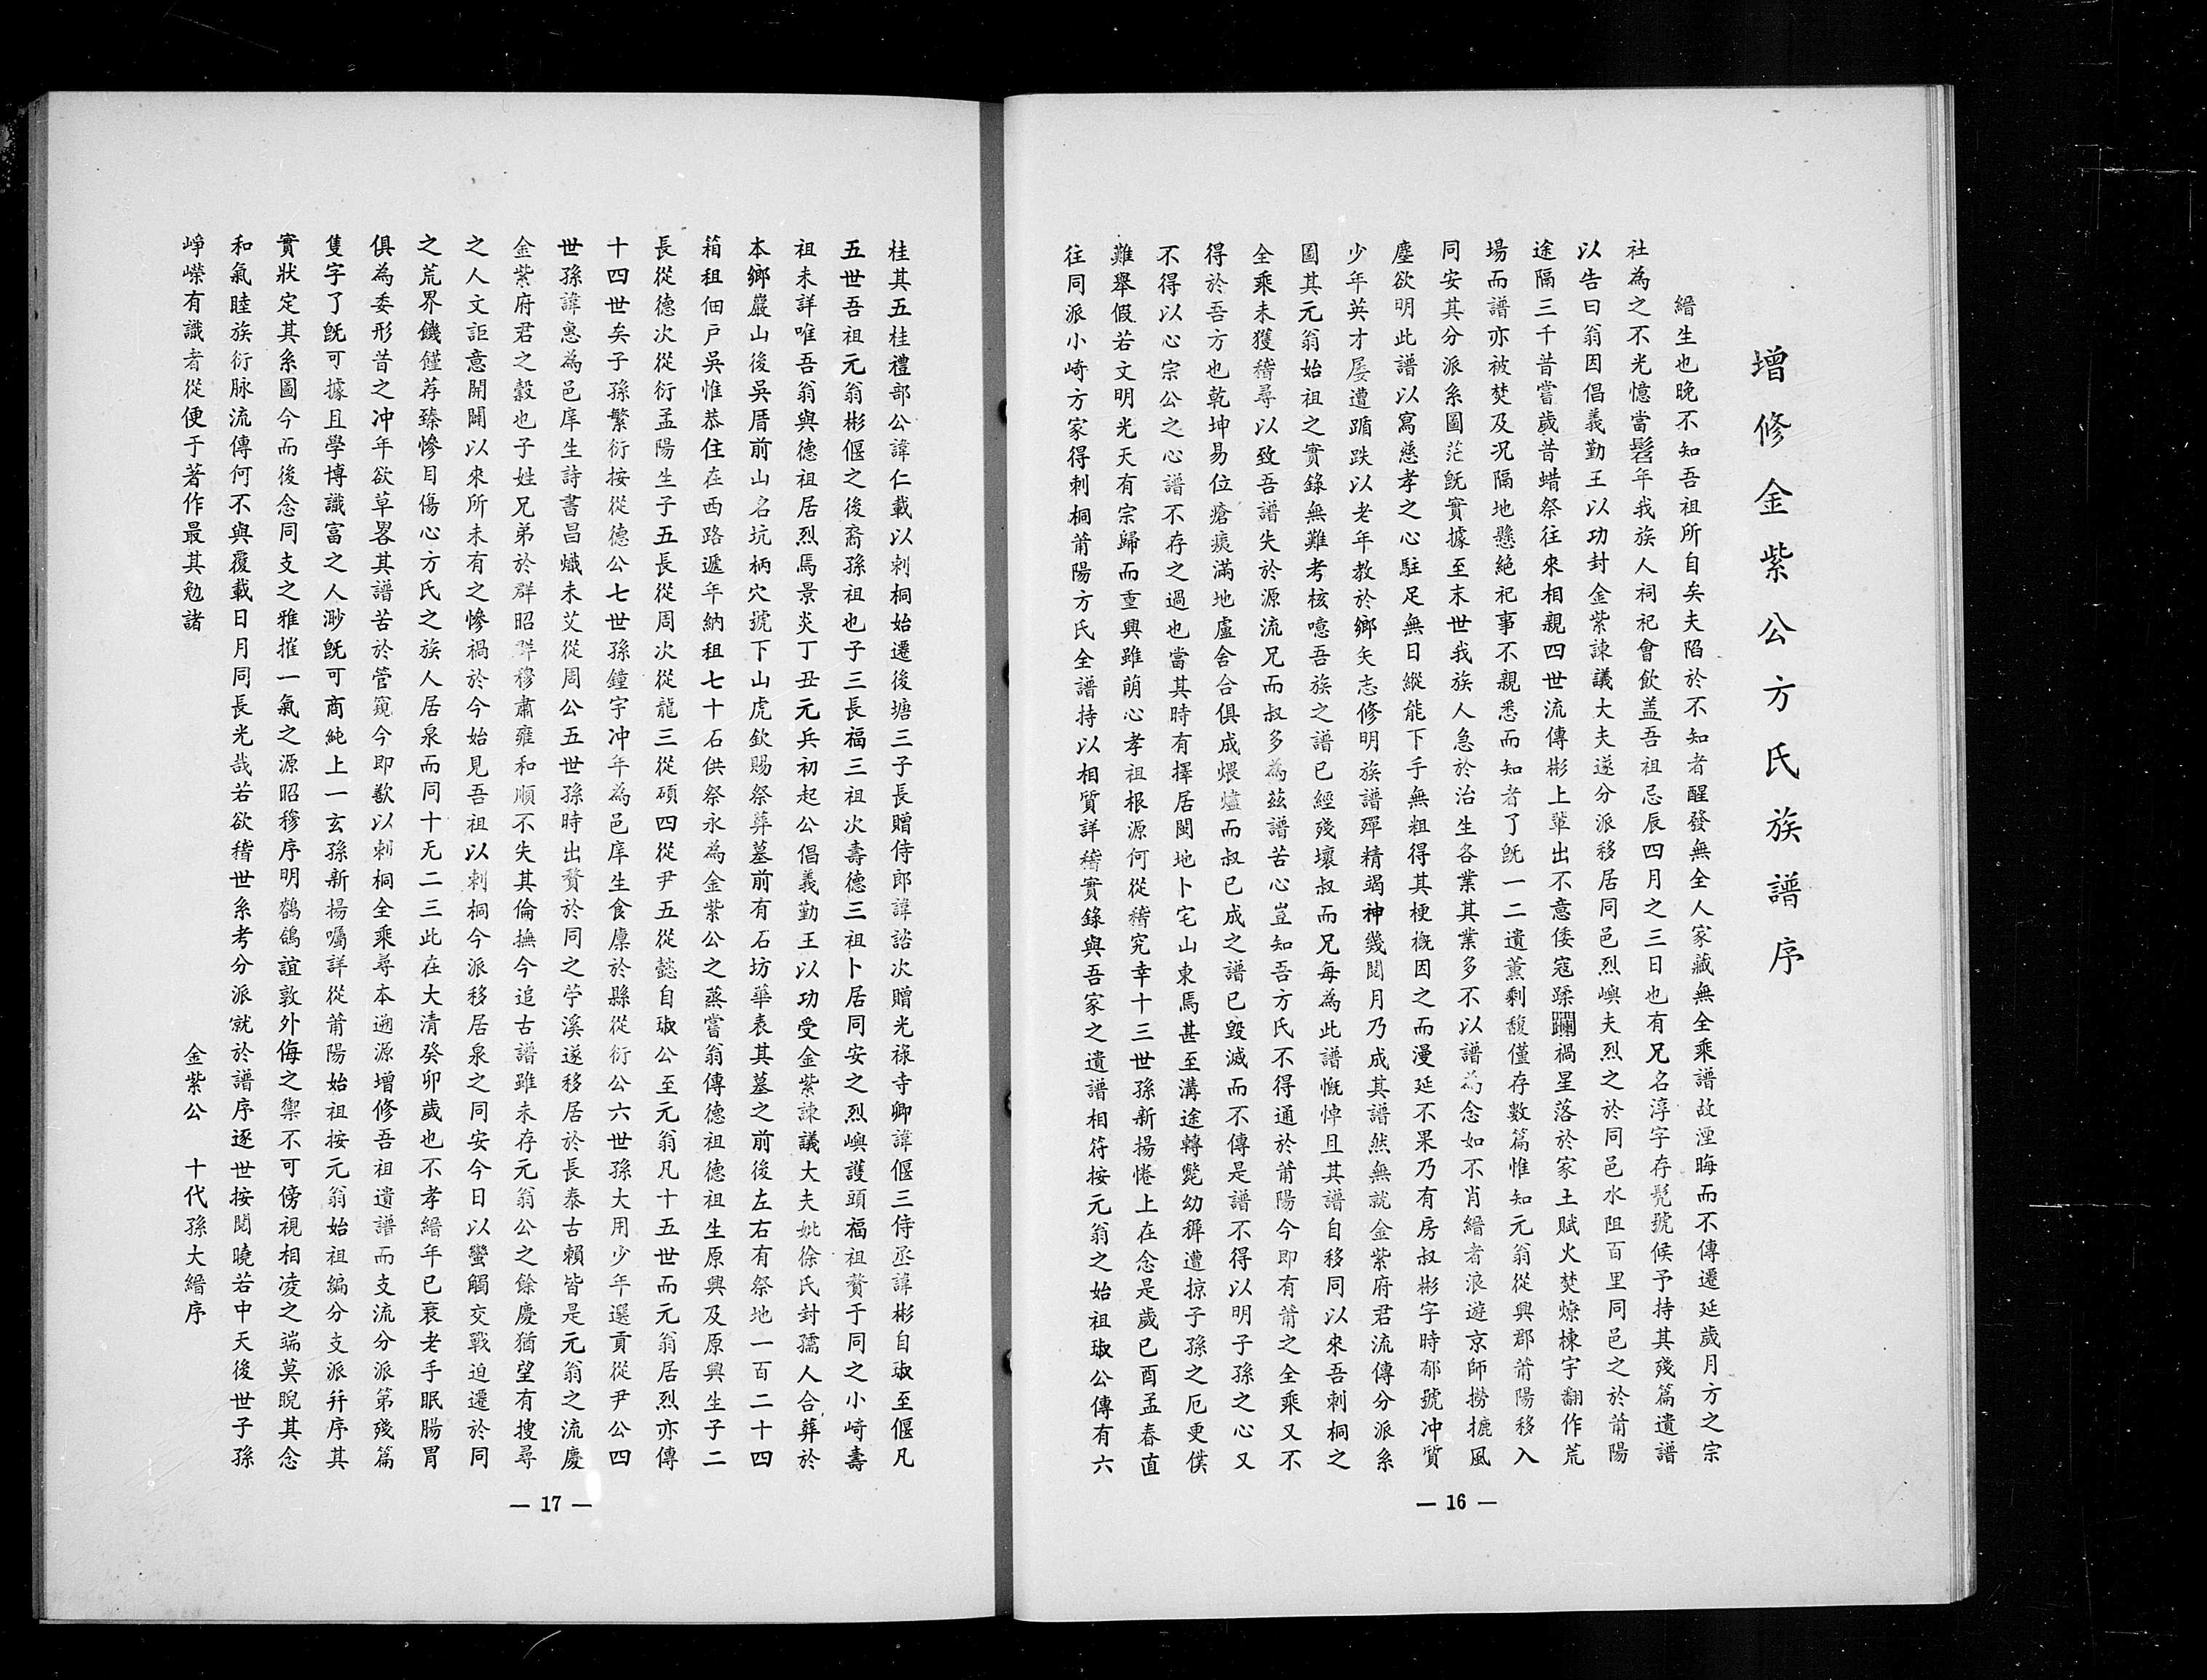 增修金紫公方氏族譜序
縉生也晚不知吾祖所自矣夫陷於不知者醒發無全人家藏無全乘譜故湮晦而不傳遷延歲月方之宗
社為之不光憶當髫年我族人祠祀會飲盖吾祖忌辰四月之三日也有兄名淳字存髡號候予持其殘篇遺譜
以告曰翁因倡義勤王以功封金紫諫議大夫遂分派移居同邑烈嶼夫烈之於同邑水阻百里同邑之於莆陽
途隔三千昔嘗歲昔蜡祭往來相親四世流傳彬上輩出不意倭寇蹂躪禍星落於家土賦火焚燎棟宇翻作荒
場而譜亦被焚及况隔地懸絕祀事不親悉而知者了旣一二遺薰剩馥僅存數篇惟知元翁從興郡莆陽移入
同安其分派系圖茫旣實據至末世我族人急於治生各業其業多不以譜為念如不肖縉者浪遊京師撈摝風
塵欲明此譜以寫慈孝之心駐足無日縱能下手無粗得其梗概因之而漫延不果乃有房叔彬字時郁號冲質
少年英才屡遭遁跌以老年教於鄉矢志修明族譜殫精竭神幾閱月乃成其譜然無就金紫府君流傳分派系
圖其元翁始祖之實錄無難考核噫吾族之譜已經殘壞叔而兄每為此譜慨悼且其譜自移同以來吾刺桐之
全乘未獲稽尋以致吾譜失於源流兄而叔多為茲譜苦心豈知吾方氏不得通於莆陽今即有莆之全乘又不
得於吾方也乾坤易位瘡痍滿地盧舍合俱成煨燼而叔已成之譜已毀滅而不傳是譜不得以明子孫之心又
不得以心宗公之心譜不存之過也當其時有擇居閩地卜宅山東焉甚至溝途轉斃幼穉遭掠子孫之厄更僕
難舉假若文明光天有宗歸而重興雖萌心孝祖根源何從稽究幸十三世孫新揚惓上在念是歲已酉孟春直
往同派小崎方家得刺桐莆陽方氏全譜持以相質詳稽實錄與吾家之遺譜相符按元翁之始祖琡公傳有六
— 16 —
桂其五桂禮部公諱仁載以刺桐始遷後塘三子長贈侍郎諱諮次贈光祿寺卿諱偃三侍丞諱彬自琡至偃凡
五世吾祖元翁彬偃之後裔孫祖也子三長福三祖次壽德三祖卜居同安之烈嶼護頭福祖贅于同之小崎壽
祖未詳唯吾翁與德祖居烈焉景炎丁丑元兵初起公倡義勤王以功受金紫諫議大夫妣徐氏封孺人合葬於
本鄉巖山後吳厝前山名坑柄穴號下山虎欽賜祭葬墓前有石坊華表其墓之前後左右有祭地一百二十四
箱租佃戶吳惟恭住在西路遞年納租七十石供祭永為金紫公之蒸嘗翁傳德祖德祖生原興及原興生子二
長從德次從衍孟陽生子五長從周次從龍三從碩四從尹五從懿自琡公至元翁凡十五世而元翁居烈亦傳
十四世矣子孫繁衍按從德公七世孫鐘宇冲年為邑庠生食廩於縣從衍公六世孫大用少年選貢從尹公四
世孫諱惠為邑庠生詩書昌熾未艾從周公五世孫時出贅於同之苧溪遂移居於長泰古賴皆是元翁之流慶
金紫府君之穀也子姓兄弟於群昭群穆肅雍和順不失其倫撫今追古譜雖未存元翁公之餘慶猶望有搜尋
之人文詎意開闢以來所未有之慘禍於今始見吾祖以刺桐今派移居泉之同安今日以蠻觸交戰迫遷於同
之荒界饑饉荐臻慘目傷心方氏之族人居泉而同十无二三此在大清癸卯歲也不孝縉年已衰老手眠腸胃
俱為委形昔之冲年欲草畧其譜苦於管窺今即歎以刺桐全乘尋本遡源增修吾祖遺譜而支流分派第殘篇
隻字了旣可據且學博識富之人渺旣可商純上一玄孫新揚囑詳從莆陽始祖按元翁始祖編分支派幷序其
實狀定其系圖今而後念同支之雅摧一氣之源昭穆序明鶺鴒誼敦外侮之禦不可傍視相凌之端莫睨其念
和氣睦族衍脉流傳何不與覆載日月同長光哉若欲稽世系考分派就於譜序逐世按閱曉若中天後世子孫
崢嶸有識者從便于著作最其勉諸
金紫公　十代孫大縉序
— 17 —